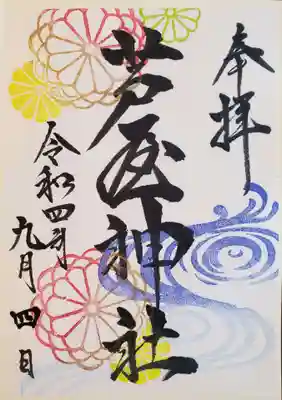 奉拝
芦屋神社
令和四年
九月四日